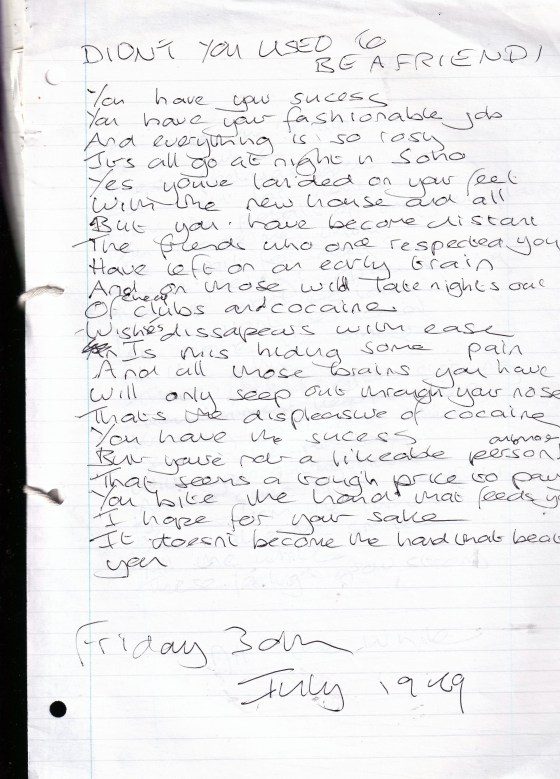 DIDN'T YOU USED TO
BE A FRIEND!
You have your sucess
You have your fashionable job
And everything is so rosy
It's all go at night n Soho
Yes youve landed on your feet
With the new house and all
But you have become distant
The friends who once respected you
Have left on an early train
And on those wild late nights out
Of cheap clubs and cocaine
Wishes dissapears with ease
Is this hiding some pain
And all those brains you have
Will only seep out through your nose
Thats the displeasure of cocaine
You have the sucess
But you're not a likeable person anymore
That seems a tough price to pay
You bite the hand that feeds yo
I hope for your sake
It doesnt become the hand that beat
you
Friday 30th
July